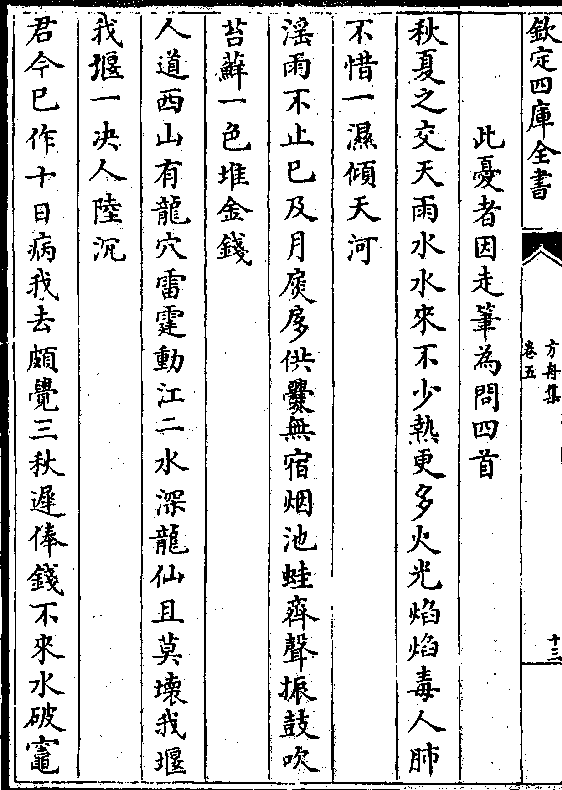 欽定四庫全書
方舟集
卷五
十三
此憂者因走筆為問四首
秋夏之交天雨水水來不少熱更多火光焰焰毒人肺
不惜一濕傾天河
淫雨不止已及月扊扅供㸑無宿烟池蛙齊聲振鼓吹
苔蘚一色堆金錢
人道西山有龍穴雷霆動江二水深龍仙且莫壞我堰
我堰一决人陸沉
君今已作十日病我去頗覺三秋遲俸錢不來水破竈